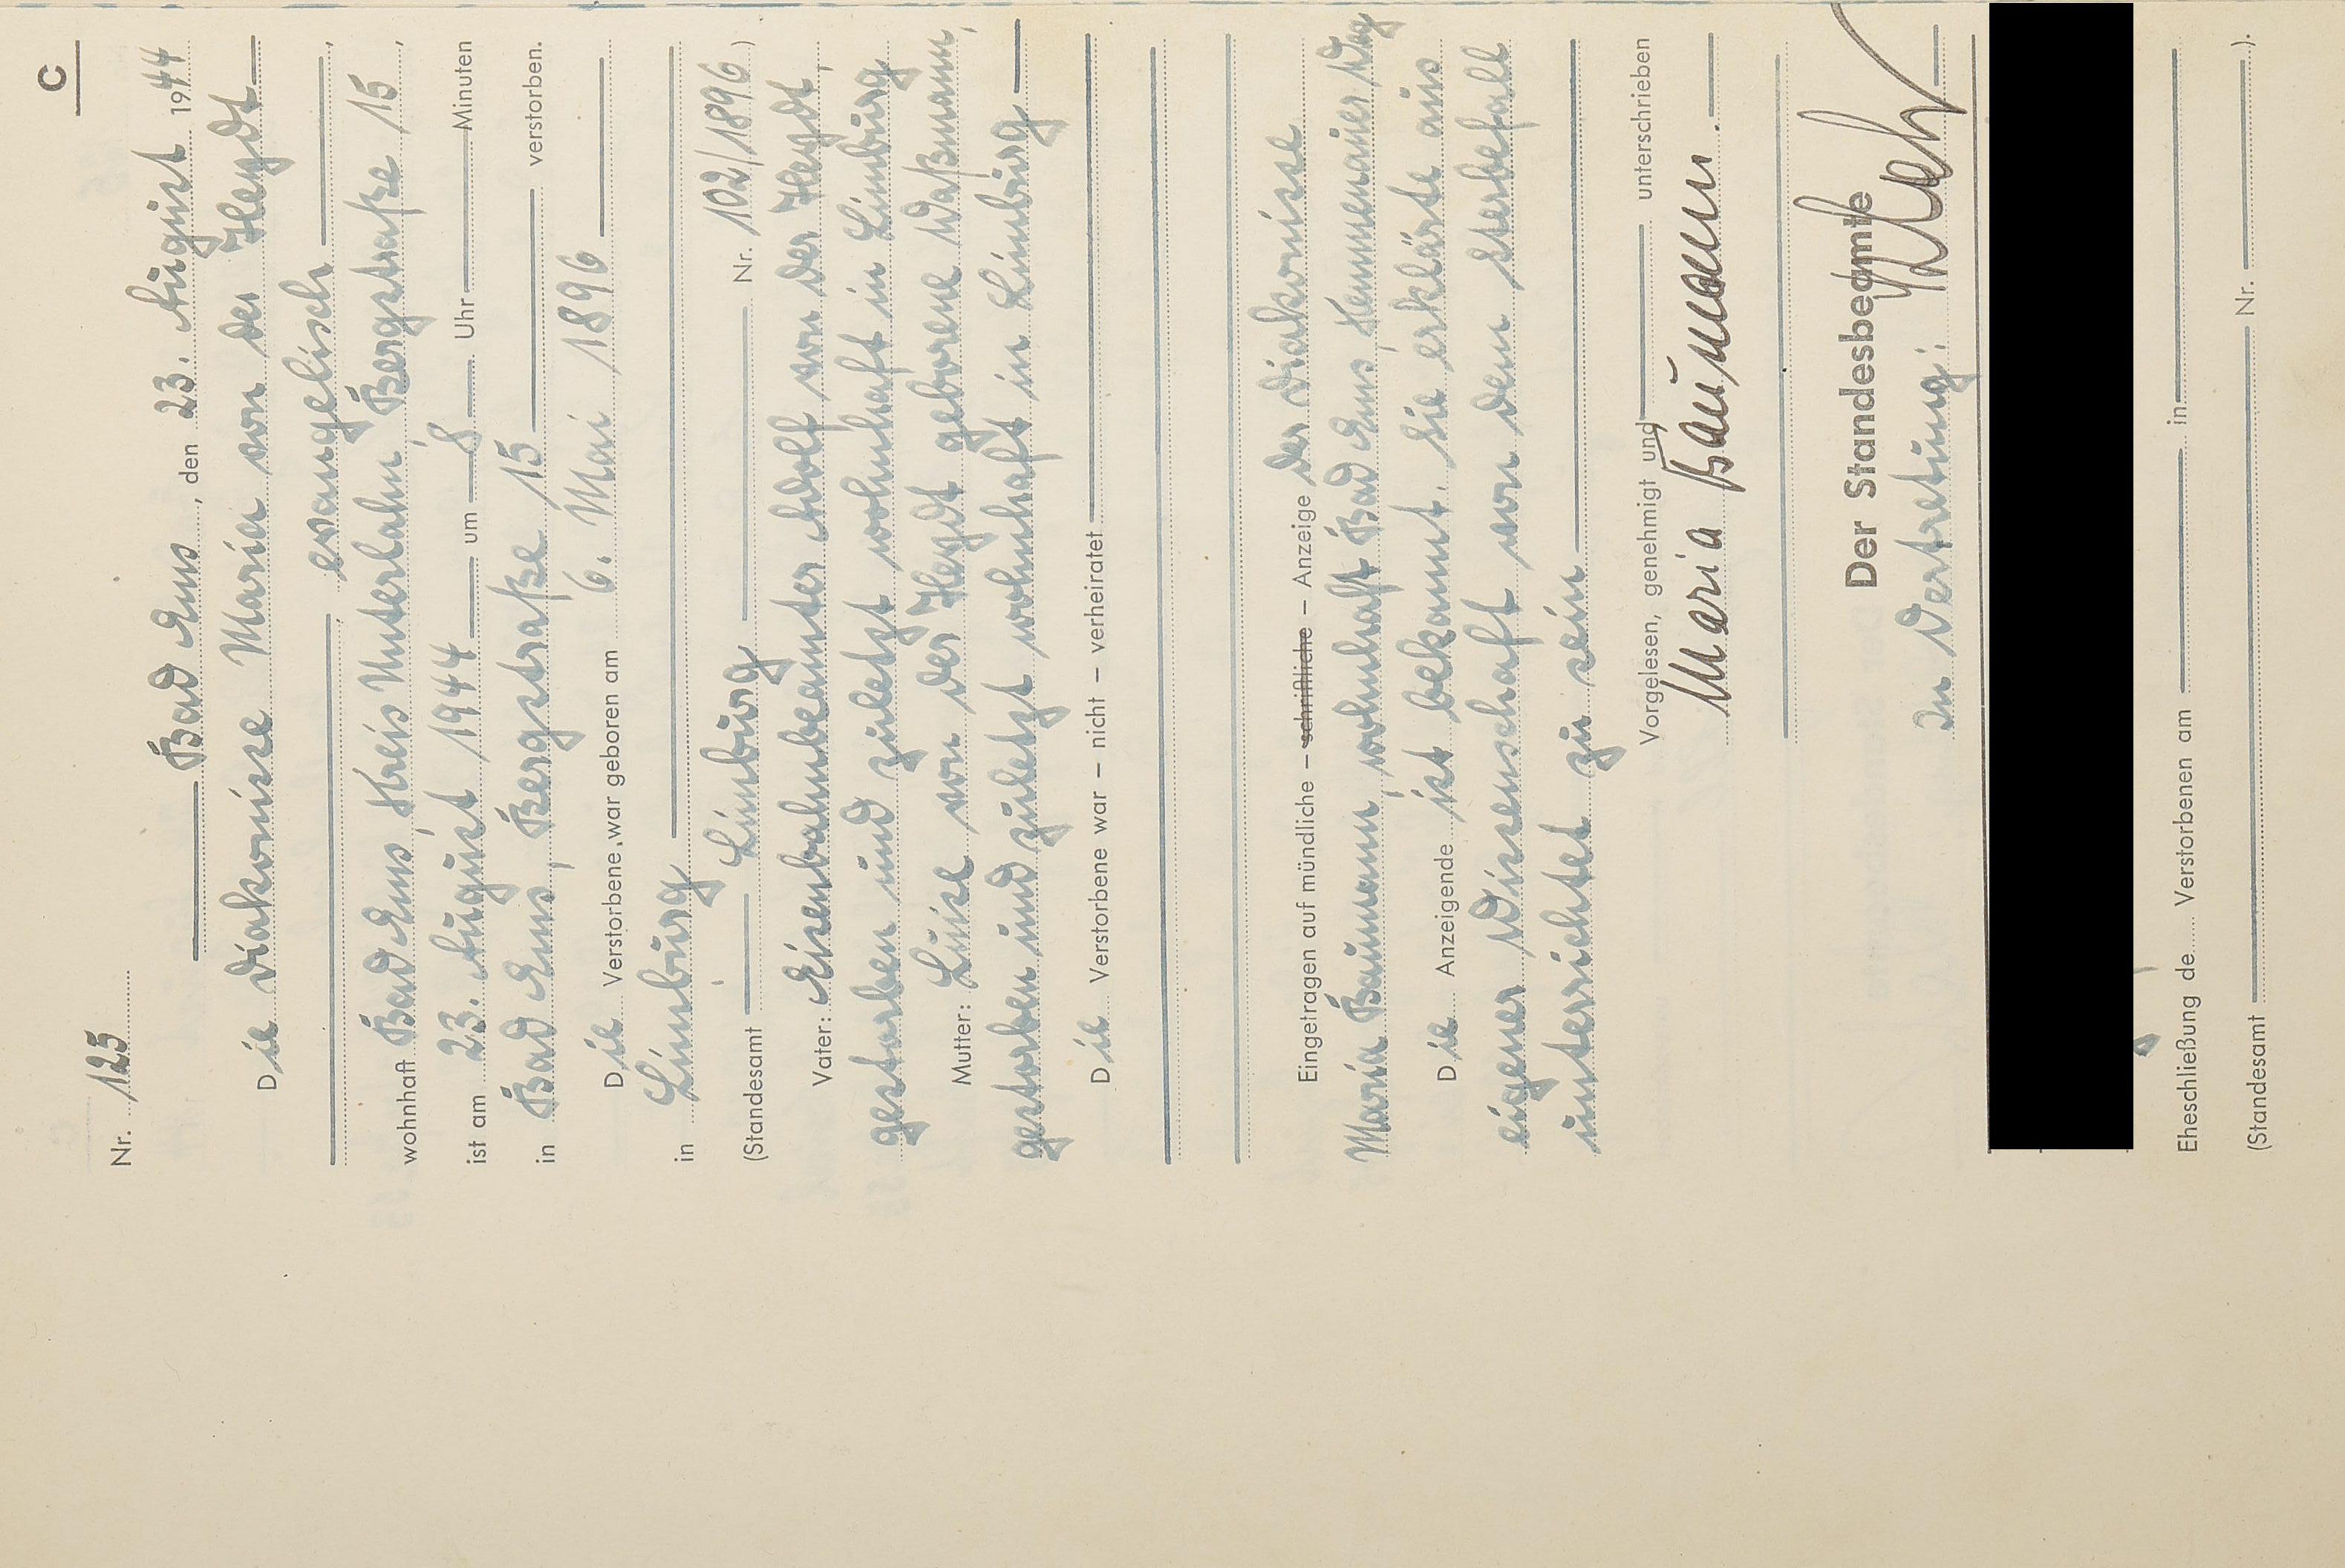 C
Nr. 125
Bad Ems, den 23. August 1944
Die Diakonisse Maria von der Heydt
evangelisch,
wohnhaft Bad Ems, Kreis Unterlahn, Bergstraße 15,
ist am 23. August 1944 um 8 Uhr Minuten
in Bad Ems, Bergstraße 15 verstorben.
Die Verstorbene war geboren am 6. Mai 1896
in Limburg
(Standesamt Limburg Nr. 102/1896)
Vater: Eisenbahnbeamter Adolf von der Heydt,
gestorben und zuletzt wohnhaft in Limburg
Mutter: Luise von der Heydt geborene Waßmann,
gestorben und zuletzt wohnhaft in Limburg
Die Verstorbene war – nicht – verheiratet
Eingetragen auf mündliche – schriftliche – Anzeige der Diakonisse
Maria Baumann, wohnhaft Bad Ems, Kemmenauer Weg
Die Anzeigende ist bekannt. Sie erklärte aus
eigener Wissenschaft von dem Sterbefall
unterrichtet zu sein
Vorgelesen, genehmigt und unterschrieben
Maria Baumann.
Der Standesbeamte
In Vertretung:
Eheschließung de Verstorbenen am in
(Standesamt Nr. ).